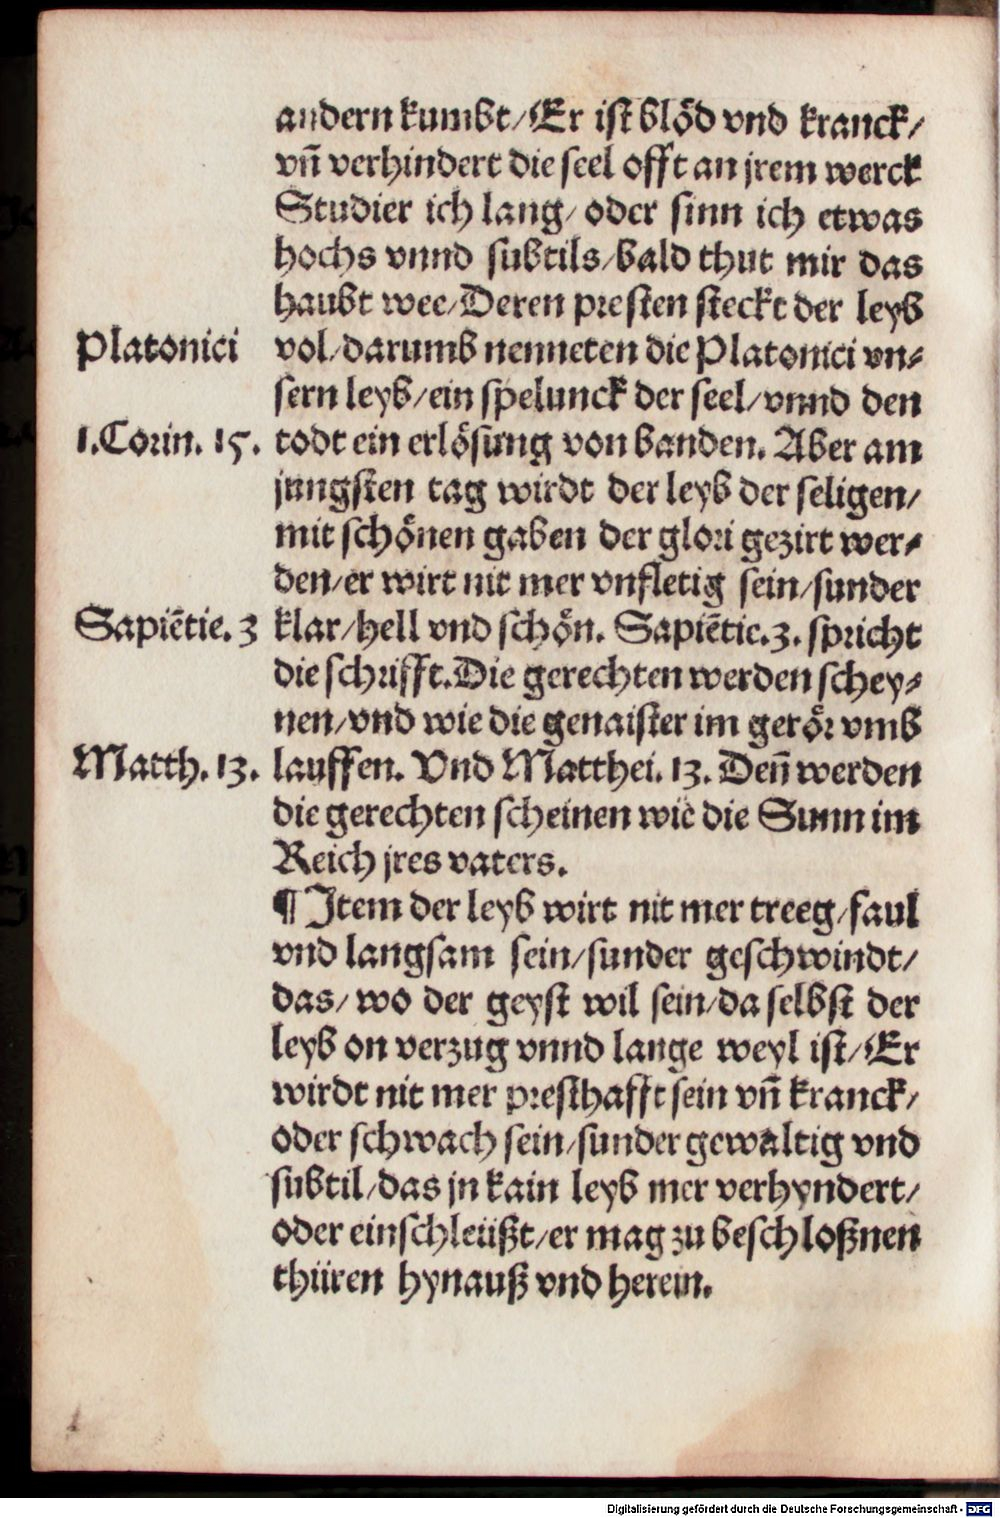 andern kumbt/Er ist blöd vnd kranck/
vñ verhindert die seel offt an jrem werck
Studier ich lang/ oder sinn ich etwas
hochs vnnd subtils/bald thut mir das
haubt wee/Deren presten steckt der leyb
Platonici vol/darumb nenneten die Platonici vn⸗
sern leyb/ein spelunck der seel/vnnd den
1.Corin. 15. todt ein erlösung von banden. Aber am
jungsten tag wirdt der leyb der seligen/
mit schönen gaben der glori gezirt wer⸗
den/er wirt nit mer vnfletig sein/sunder
Sapiẽtie. 3 klar/hell vnd schön. Sapiẽtie.3. spricht
die schrifft.Die gerechten werden schey⸗
nen/vnd wie die genaister im gerör vmb
Matth. 13. lauffen. Vnd Matthei. 13. Deñ werden
die gerechten scheinen wie die Sunn im
Reich jres vaters.
¶ Item der leyb wirt nit mer treeg/faul
vnd langsam sein/sunder geschwindt/
das/ wo der geyst wil sein/da selbst der
leyb on verzug vnnd lange weyl ist/Er
wirdt nit mer presthafft sein vñ kranck/
oder schwach sein/sunder gewaltig vnd
subtil/das jn kain leyb mer verhyndert/
oder einschleüßt/er mag zu beschloßnen
thüren hynauß vnd herein.
Digitalisierung gefördert durch die Deutsche Forschungsgemeinschaft - DFG